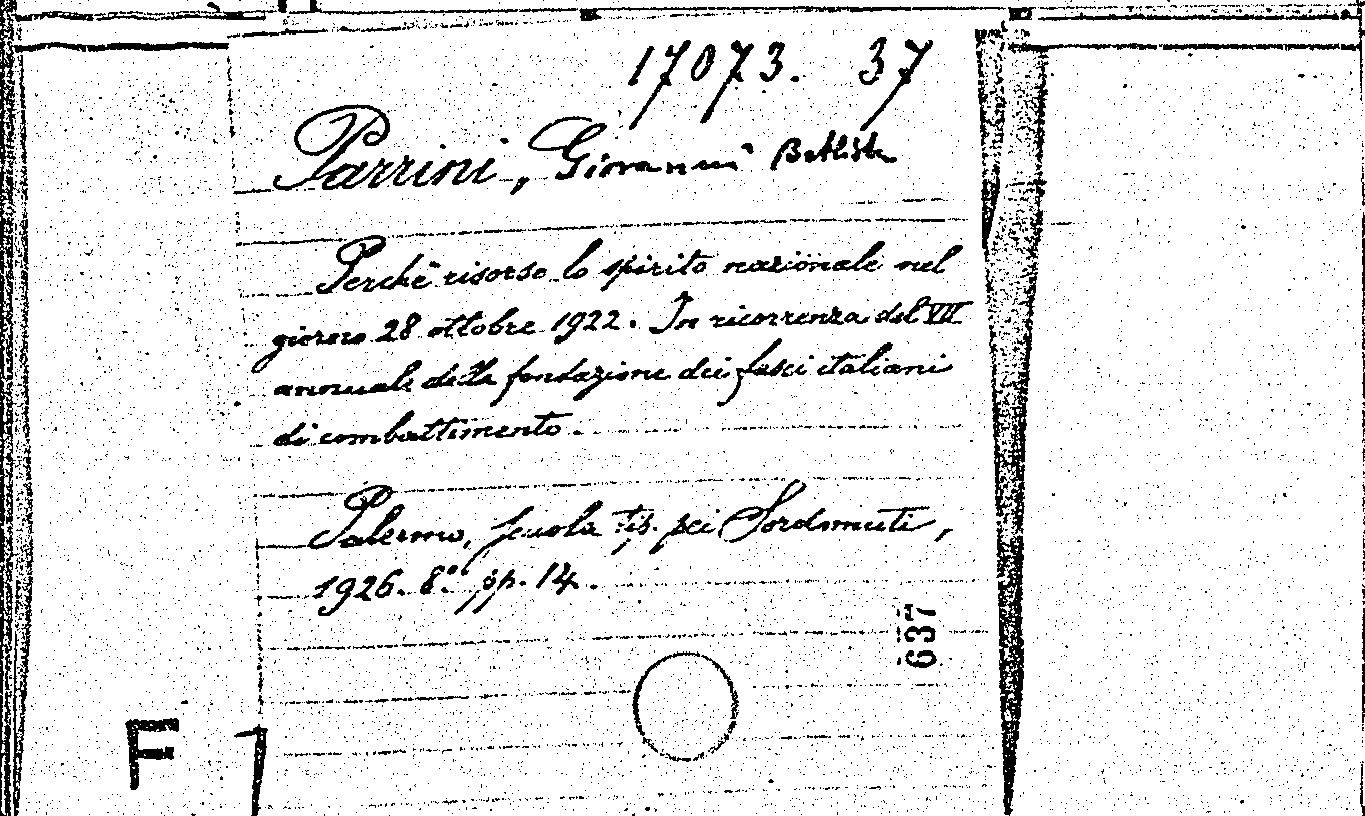 17073. 37
Parrini, Giovanni Battista
Perchè risorse lo spirito nazionale nel
giorno 28 ottobre 1922. In ricorrenza del VII
annuale della fondazione dei fasci italiani
di combattimento.
Palermo, Scuola tip. pei Sordomuti,
1926. 8.° pp. 14.
637
F